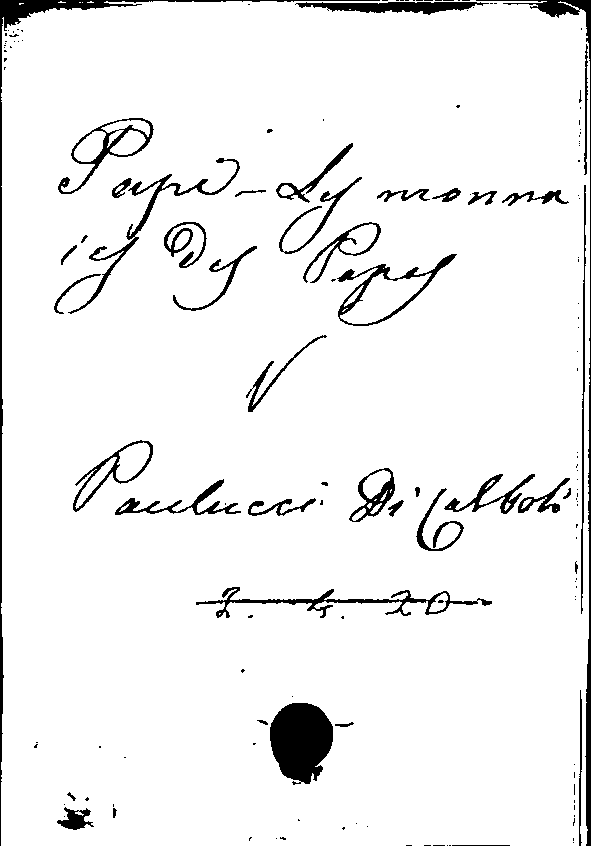 Papi - Les monna
ies des Papes
V
Paulucci Di Calboli
2. 4. 20